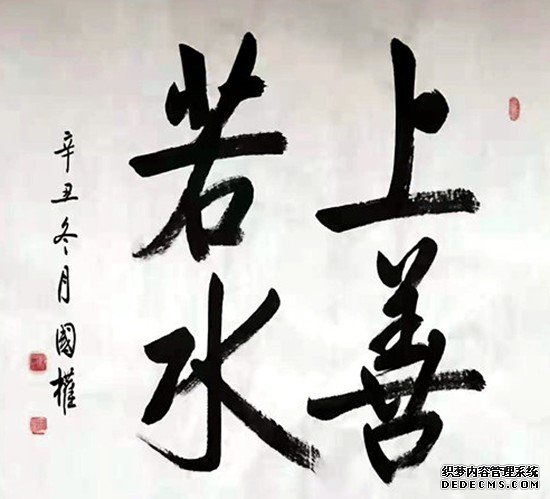 上善
若水
辛丑冬月國權
织梦内容管理系统
DEDECMS.COM